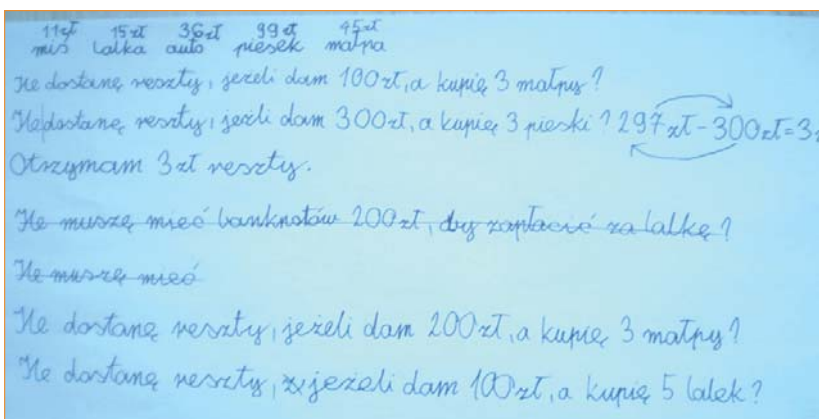 11zł 15zł 36zł 99zł 45zł
miś lalka auto piesek małpa
Ile dostanę reszty, jeżeli dam 100zł, a kupię 3 małpy?
Ile dostanę reszty, jeżeli dam 300zł, a kupię 3 pieski? 297zł-300zł=3z
Otrzymam 3zł reszty.
Ile muszę mieć banknotów 200zł, aby zapłacić za lalkę?
Ile muszę mieć
Ile dostanę reszty, jeżeli dam 200zł, a kupię 3 małpy?
Ile dostanę reszty, jeżeli dam 100zł, a kupię 5 lalek?